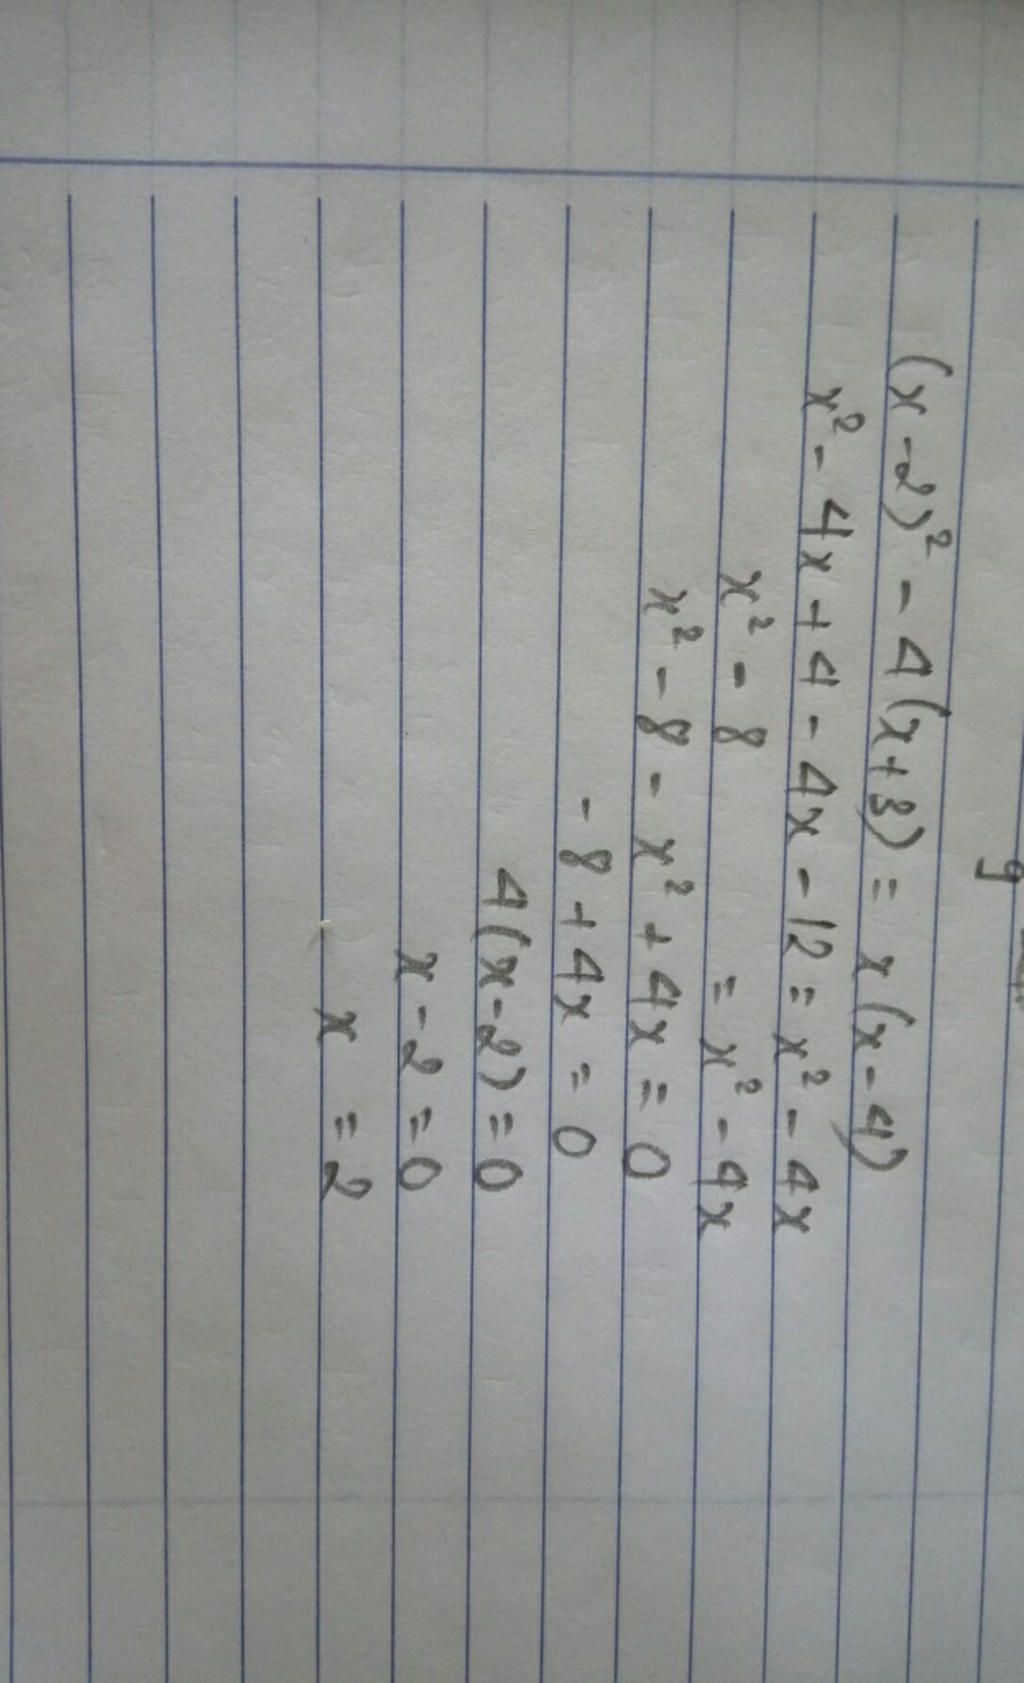 (x-2)² - 4(x+3) = x(x-4)
x² - 4x + 4 - 4x - 12 = x² - 4x
x² - 8 = x² - 4x
x² - 8 - x² + 4x = 0
- 8 + 4x = 0
4(x-2) = 0
x - 2 = 0
x = 2